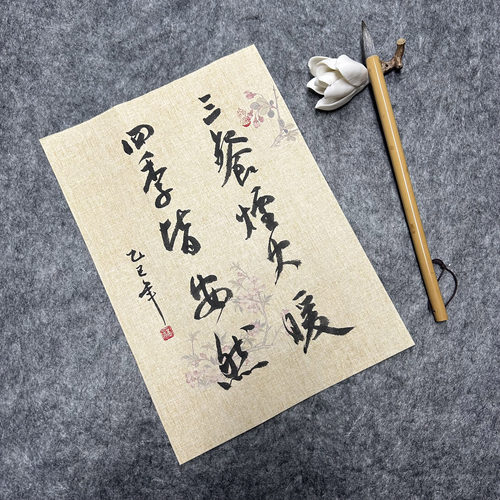 三餐煙火暖
四季皆安然
乙巳年